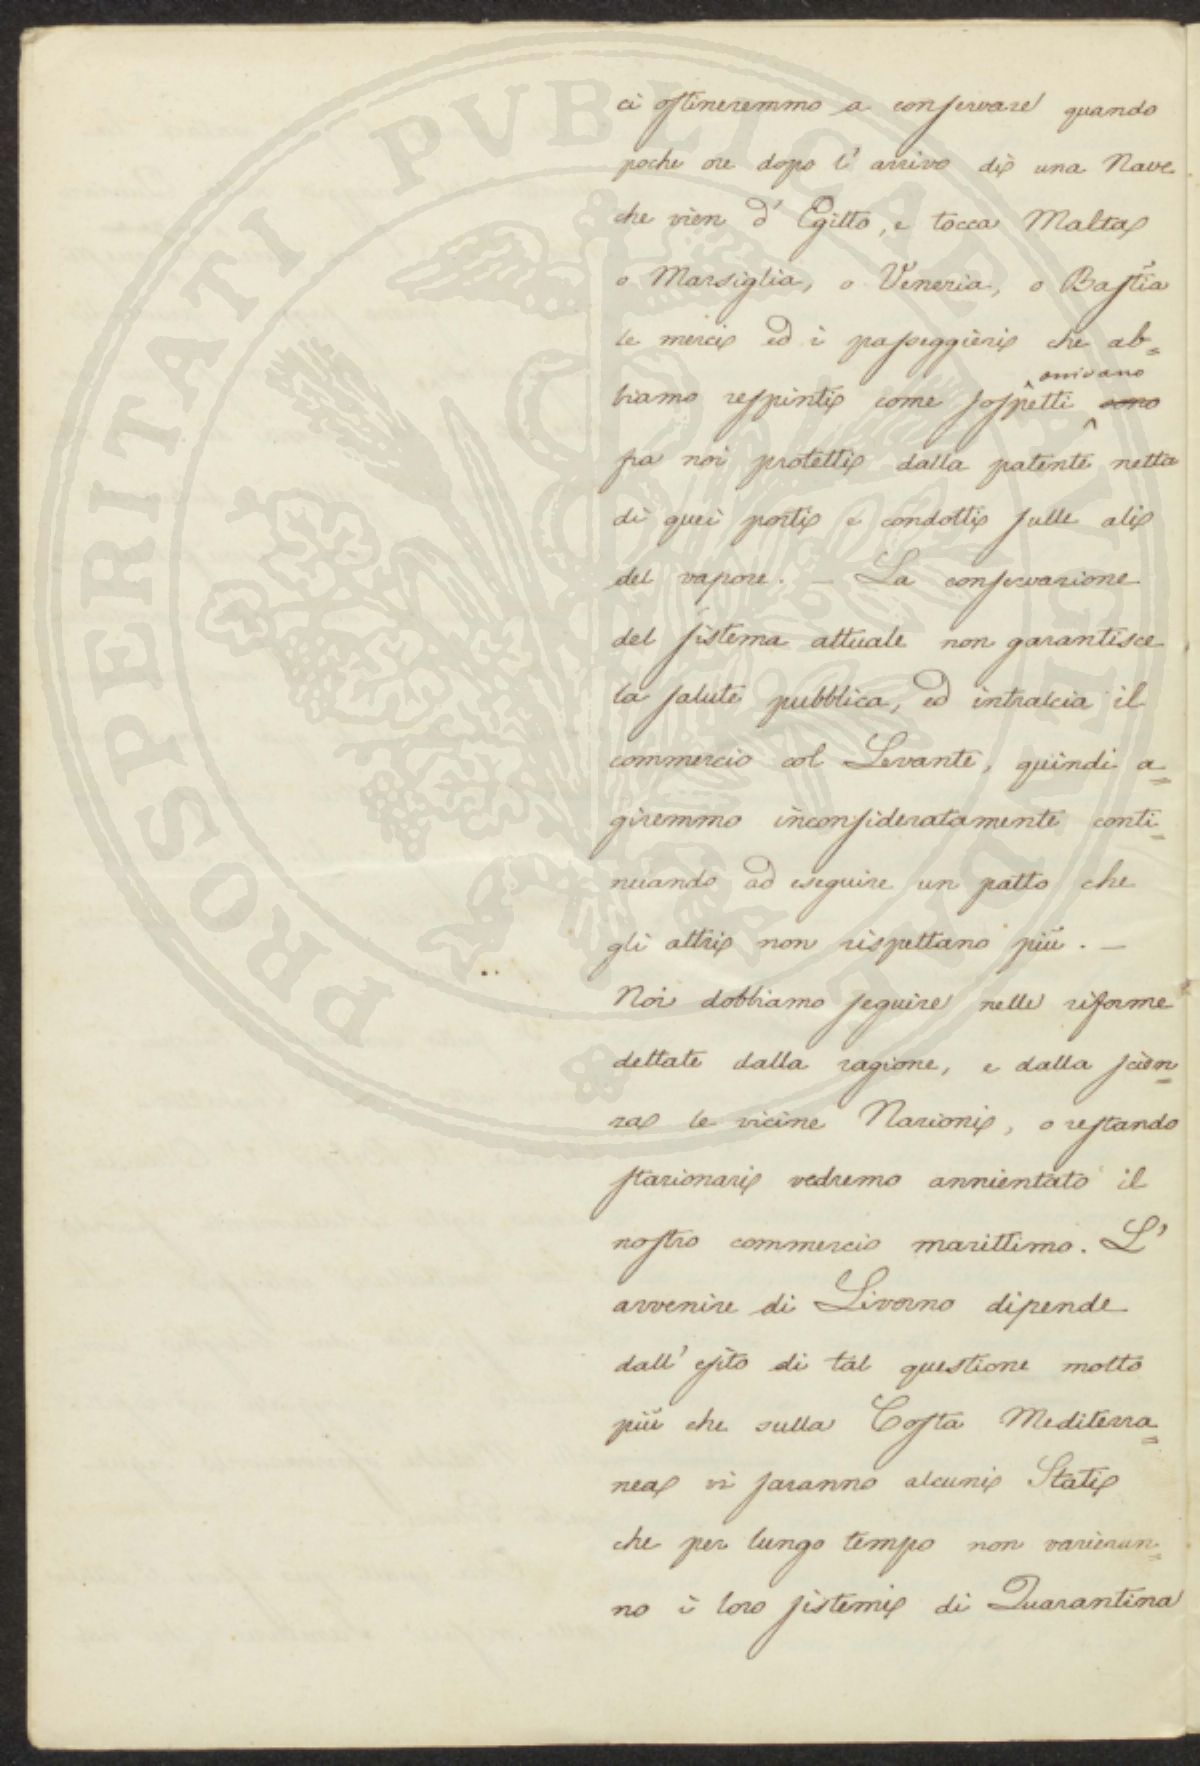 ci ostineremmo a conservare quando
poche ore dopo l'arrivo di una Nave
che vien d'Egitto, e tocca Malta
o Marsiglia, o Venezia, o Bastia
le merci ed i passeggieri che ab=
arrivano
biamo respinti come sospetti sono
fra noi protetti dalla patente netta
di quei porti e condotti sulle ali
del vapore. — La conservazione
del sistema attuale non garantisce
la salute pubblica, ed intralcia il
commercio col Levante, quindi a=
giremmo inconsideratamente conti=
nuando ad eseguire un patto che
gli altri non rispettano più. —
Noi dobbiamo seguire nelle riforme
dettate dalla ragione, e dalla scien=
za le vicine Nazioni, o restando
stazionari vedremo annientato il
nostro commercio marittimo. L'
avvenire di Livorno dipende
dall'esito di tal questione molto
più che sulla Costa Mediterra=
nea vi saranno alcuni Stati
che per lungo tempo non varieran=
no i loro sistemi di Quarantina
PROSPERITATI PVBLICAE AVGENDAE